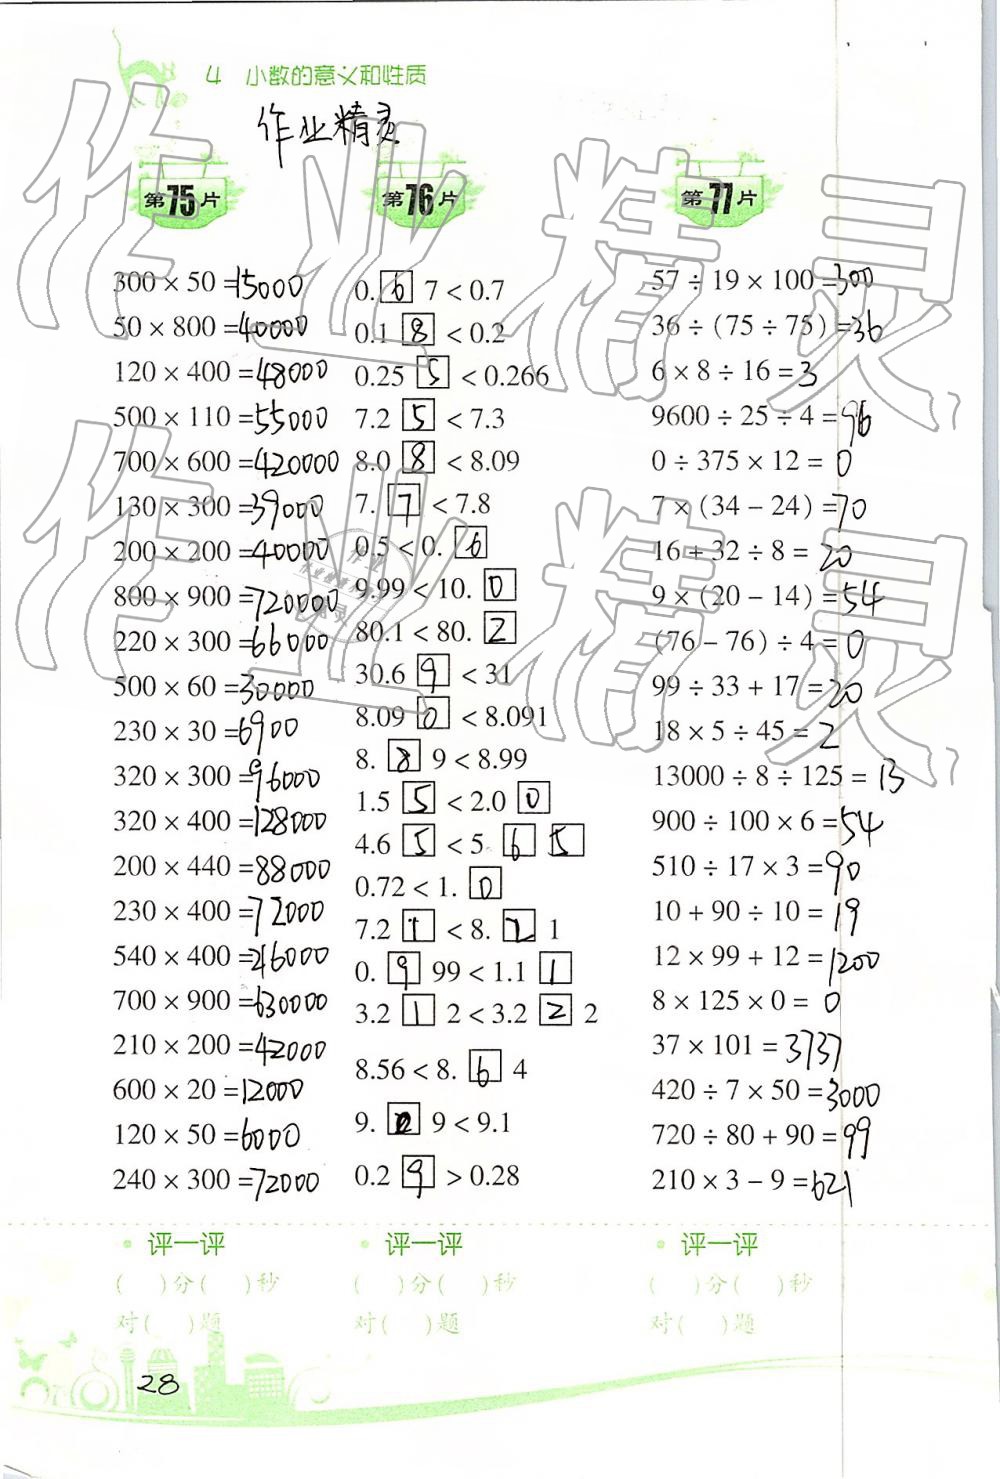 4 小数的意义和性质
作业精灵
第75片
300 × 50 =15000
50 × 800 =40000
120 × 400 =48000
500 × 110 =55000
700 × 600 =420000
130 × 300 =39000
200 × 200 =40000
800 × 900 =720000
220 × 300 =66000
500 × 60 =30000
230 × 30 =6900
320 × 300 =96000
320 × 400 =128000
200 × 440 =88000
230 × 400 =72000
540 × 400 =216000
700 × 900 =630000
210 × 200 =42000
600 × 20 =12000
120 × 50 =6000
240 × 300 =72000
评一评
( )分( )秒
对( )题
第76片
0. 6 7 < 0.7
0.1 8 < 0.2
0.25 5 < 0.266
7.2 5 < 7.3
8.0 8 < 8.09
7. 7 < 7.8
0.5 < 0. 6
9.99 < 10. 0
80.1 < 80. 2
30.6 9 < 31
8.09 0 < 8.091
8. 8 9 < 8.99
1.5 5 < 2.0 0
4.6 5 < 5. 6 5
0.72 < 1. 0
7.2 1 < 8. 1
0. 9 99 < 1.1 1
3.2 1 2 < 3.2 2 2
8.56 < 8. 6 4
9. 0 9 < 9.1
0.2 9 > 0.28
评一评
( )分( )秒
对( )题
第77片
57 ÷ 19 × 100 =300
36 ÷ (75 ÷ 75) =36
6 × 8 ÷ 16 =3
9600 ÷ 25 ÷ 4 =96
0 ÷ 375 × 12 = 0
7 × (34 − 24) =70
16 + 32 ÷ 8 = 20
9 × (20 − 14) =54
(76 − 76) ÷ 4 =0
99 ÷ 33 + 17 =20
18 × 5 ÷ 45 = 2
13000 ÷ 8 ÷ 125 = 13
900 ÷ 100 × 6 =54
510 ÷ 17 × 3 =90
10 + 90 ÷ 10 = 19
12 × 99 + 12 =1200
8 × 125 × 0 = 0
37 × 101 = 3737
420 ÷ 7 × 50 =3000
720 ÷ 80 + 90 =99
210 × 3 − 9 =621
评一评
( )分( )秒
对( )题
28
作业精灵
作业精灵